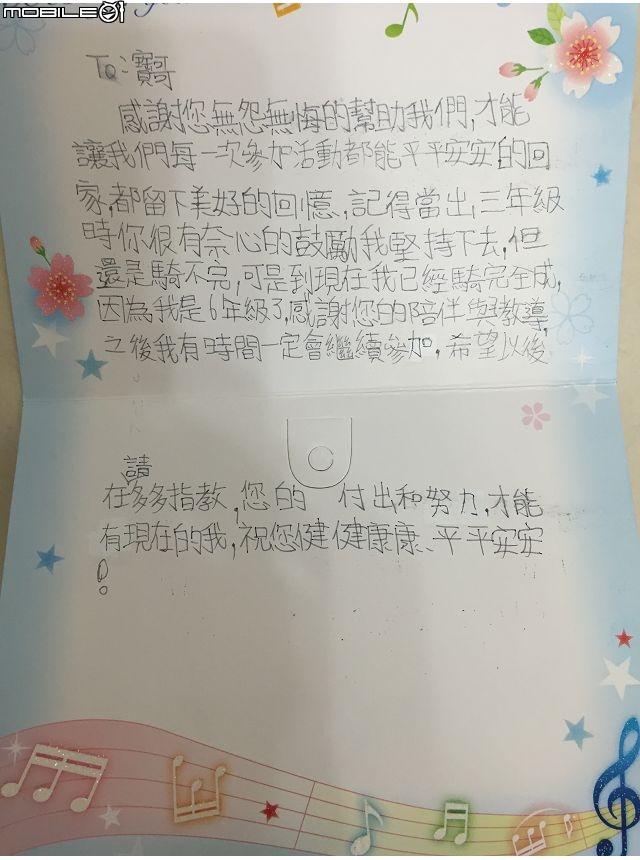 MOBILE01
To:寶哥
感謝您無怨無悔的幫助我們,才能
讓我們每一次參加活動都能平平安安的回
家,都留下美好的回憶,記得當出,三年級
時你很有奈心的鼓勵我堅持下去,但
還是騎不完,可是到現在我已經騎完全成,
因為我是6年級了,感謝您的陪伴與教導,
之後我有時間一定會繼續參加,希望以後
請
在多多指教,您的 付出和努力,才能
有現在的我,祝您健健康康、平平安安
!